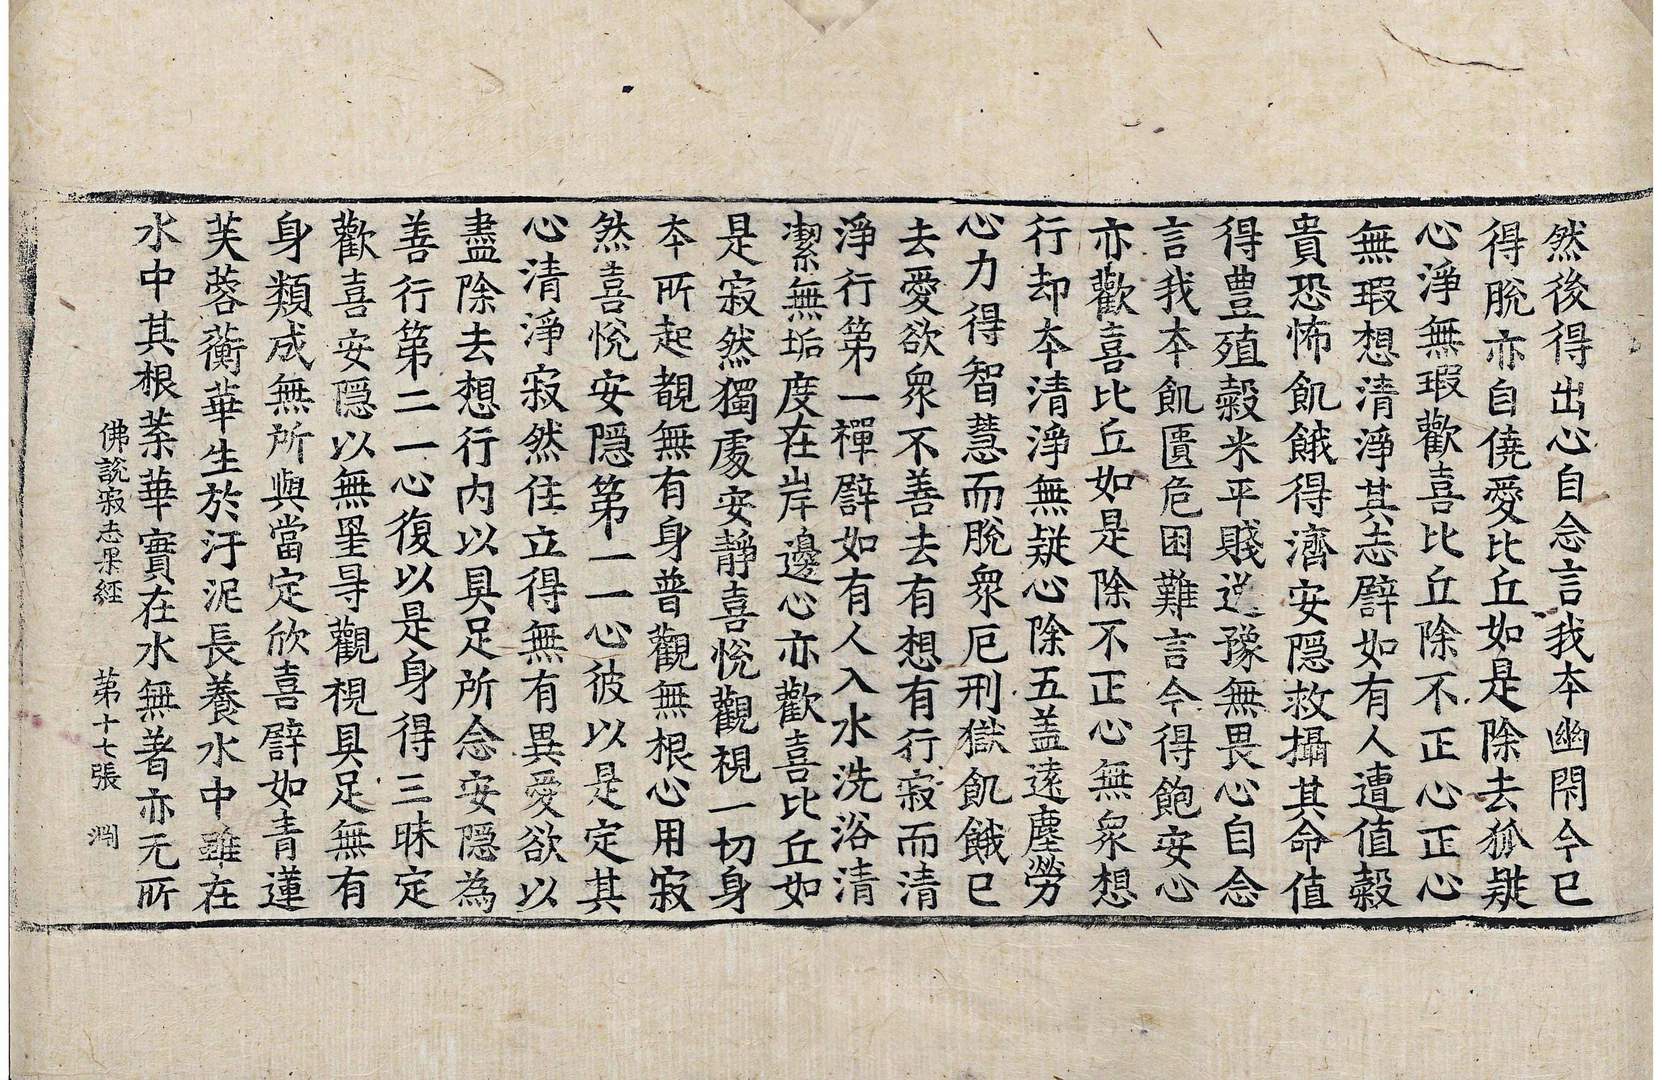 然後得出心自念言我本幽閑今已
得脫亦自僥愛比丘如是除去狐疑
心淨無瑕歡喜比丘除不正心正心
無瑕想清淨其志譬如有人遭值穀
貴恐怖飢餓得濟安隱救攝其命值
得豊殖穀米平賤逆豫無畏心自念
言我本飢匱危困難言今得飽安心
亦歡喜比丘如是除不正心無衆想
行却本清淨無疑心除五盖遠塵勞
心力得智慧而脫衆厄刑獄飢餓已
去愛欲衆不善去有想有行寂而清
淨行第一禪譬如有人入水洗浴清
潔無垢度在岸邊心亦歡喜比丘如
是寂然獨處安靜喜悅觀視一切身
本所起覩無有身普觀無根心用寂
然喜悅安隱第一一心彼以是定其
心清淨寂然住立得無有異愛欲以
盡除去想行内以具足所念安隱為
善行第二一心復以是身得三昧定
歡喜安隱以無罣㝵觀視具足無有
身類成無所與當定欣喜譬如青蓮
芙蓉蘅華生於汙泥長養水中雖在
水中其根葉華實在水無著亦无所
佛說寂志果經 第十七張 淵